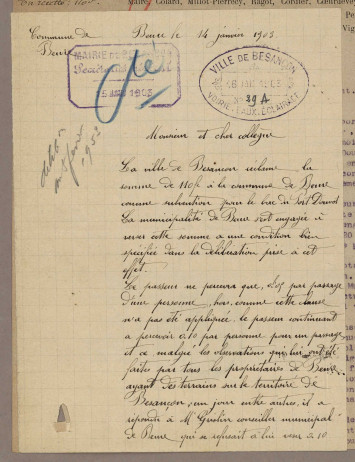 Maire, Colard, Millot-Pierrecy, Ragot, Cordier,
Commune de
Beure
Beure le 14 janvier 1903
MAIRIE DE
Secrétariat
15 JAN 1903
VILLE DE BESANÇON
16 JAN 1903
N° 39 A
VOIRIE, EAUX, ÉCLAIRAGE
Monsieur et cher collègue
La ville de Besançon réclame la
somme de 110f à la commune de Beure
comme subvention pour le bac du Port Douvot
La municipalité de Beure s'est engagée à
verser cette somme a une condition bien
spécifiée dans la délibération prise à cet
effet.
Le passeur ne percevra que 0.05 par passage
d'une personne, hors, comme cette clause
n'a pas été appliquée, le passeur continuant
a percevoir 0.10 par personne pour un passage
et ce malgré les observations qui lui ont été
faites par tous les propriétaires de Beure
ayant des terrains sur le territoire de
Besançon, un jour entre autres, il a
répondu à Mr conseiller municipal
de Beure qui se refusait à lui verser 0.10